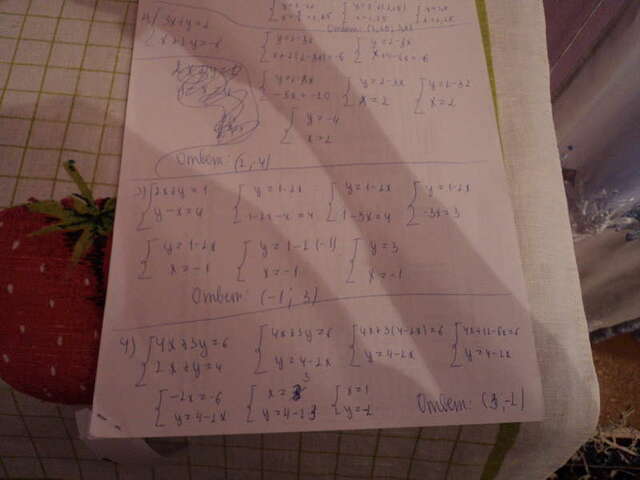 Ответ:
2) { 3x+y=2
x+2y=-6
{ y=2-3x
x+2(2-3x)=-6
{ y=2-3x
x+4-6x=-6
{ y=2-3x
-5x=-10
{ y=2-3x
x=2
{ y=2-3x
x=2
{ y=-4
x=2
Ответ: (2;-4)
3) { 2x+y=1
y-x=4
{ y=1-2x
1-2x-x=4
{ y=1-2x
1-3x=4
{ y=1-2x
-3x=3
{ y=1-2x
x=-1
{ y=1-2(-1)
x=-1
{ y=3
x=-1
Ответ: (-1; 3)
4) { 4x+3y=6
2x+y=4
{ 4x+3y=6
y=4-2x
{ 4x+3(4-2x)=6
y=4-2x
{ 4x+12-6x=6
y=4-2x
{ -2x=-6
y=4-2x
{ x=3
y=4-2·3
{ x=1
y=-2
Ответ: (3;-2)